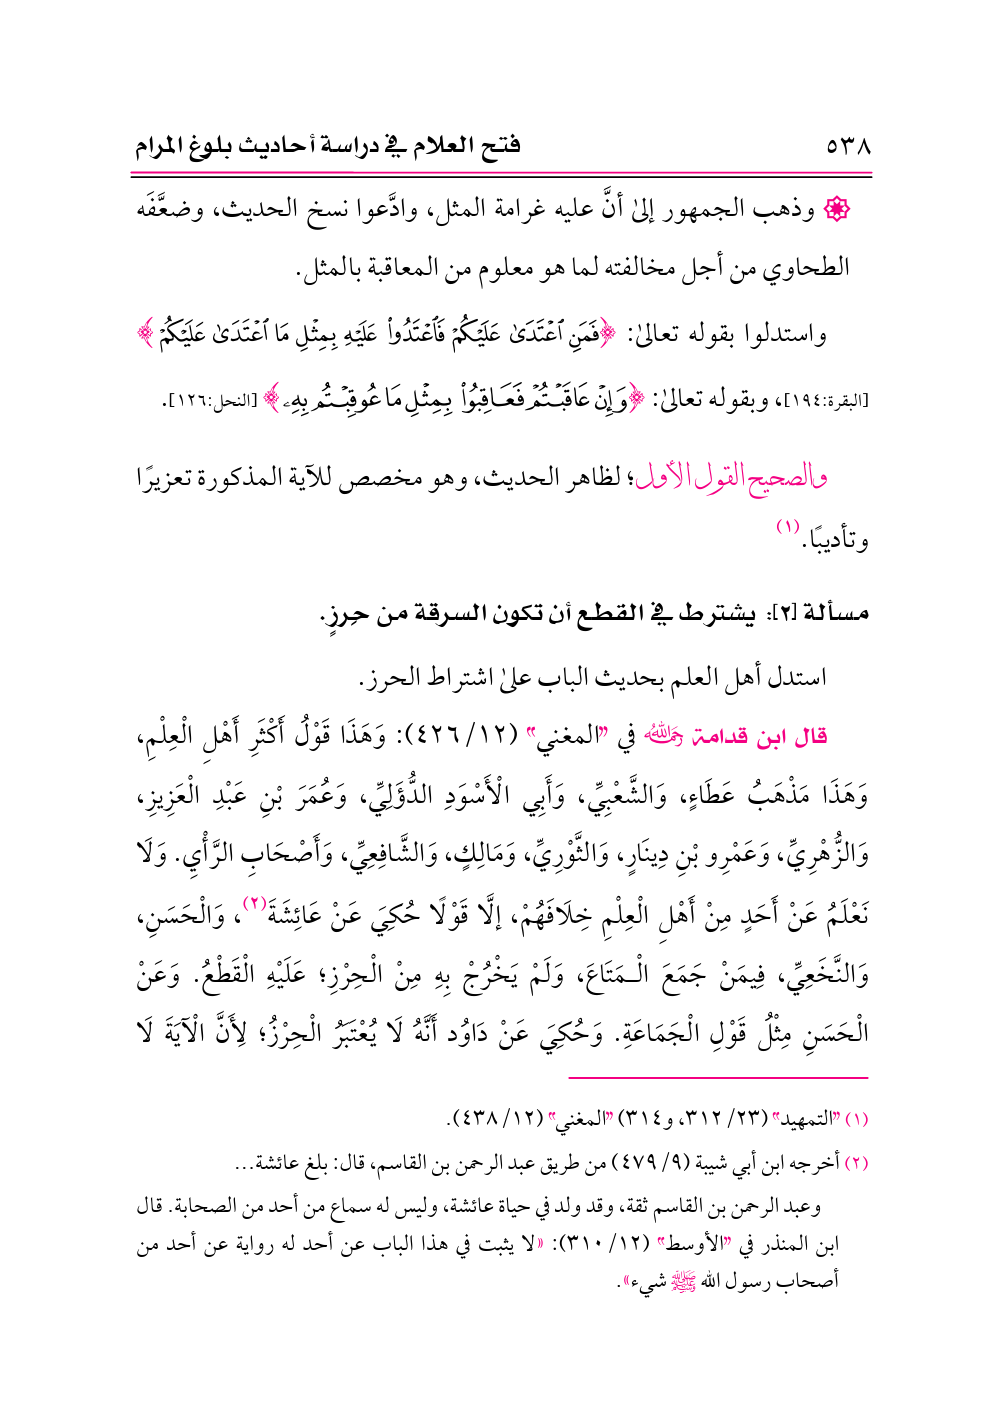 ٥٣٨ فتح العلام في دراسة أحاديث بلوغ المرام
وذهب الجمهور إلىٰ أنَّ عليه غرامة المثل، وادَّعوا نسخ الحديث، وضعَّفَه
الطحاوي من أجل مخالفته لما هو معلوم من المعاقبة بالمثل.
واستدلوا بقوله تعالىٰ: ﴿فَمَنِ ٱعْتَدَىٰ عَلَيْكُمْ فَٱعْتَدُوا۟ عَلَيْهِ بِمِثْلِ مَا ٱعْتَدَىٰ عَلَيْكُمْ﴾
[البقرة:١٩٤]، وبقوله تعالىٰ: ﴿وَإِنْ عَاقَبْتُمْ فَعَاقِبُوا۟ بِمِثْلِ مَا عُوقِبْتُم بِهِۦ﴾ [النحل:١٢٦].
والصحيح القول الأول؛ لظاهر الحديث، وهو مخصص للآية المذكورة تعزيرًا
وتأديبًا.(١)
مسألة [٢]: يشترط في القطع أن تكون السرقة من حِرزٍ.
استدل أهل العلم بحديث الباب علىٰ اشتراط الحرز.
قال ابن قدامة رَحِمَهُ اللَّهُ في "المغني" (١٢/ ٤٢٦): وَهَذَا قَوْلُ أَكْثَرِ أَهْلِ الْعِلْمِ،
وَهَذَا مَذْهَبُ عَطَاءٍ، وَالشَّعْبِيِّ، وَأَبِي الْأَسْوَدِ الدُّؤَلِيِّ، وَعُمَرَ بْنِ عَبْدِ الْعَزِيزِ،
وَالزُّهْرِيِّ، وَعَمْرِو بْنِ دِينَارٍ، وَالثَّوْرِيِّ، وَمَالِكٍ، وَالشَّافِعِيِّ، وَأَصْحَابِ الرَّأْيِ. وَلَا
نَعْلَمُ عَنْ أَحَدٍ مِنْ أَهْلِ الْعِلْمِ خِلَافَهُمْ، إلَّا قَوْلًا حُكِيَ عَنْ عَائِشَةَ(٢)، وَالْحَسَنِ،
وَالنَّخَعِيِّ، فِيمَنْ جَمَعَ الْـمَتَاعَ، وَلَمْ يَخْرُجْ بِهِ مِنْ الْحِرْزِ؛ عَلَيْهِ الْقَطْعُ. وَعَنْ
الْحَسَنِ مِثْلُ قَوْلِ الْجَمَاعَةِ. وَحُكِيَ عَنْ دَاوُد أَنَّهُ لَا يُعْتَبَرُ الْحِرْزُ؛ لِأَنَّ الْآيَةَ لَا
(١) "التمهيد" (٢٣/ ٣١٢، و٣١٤) "المغني" (١٢/ ٤٣٨).
(٢) أخرجه ابن أبي شيبة (٩/ ٤٧٩) من طريق عبد الرحمن بن القاسم، قال: بلغ عائشة...
وعبد الرحمن بن القاسم ثقة، وقد ولد في حياة عائشة، وليس له سماع من أحد من الصحابة. قال
ابن المنذر في "الأوسط" (١٢/ ٣١٠): «لا يثبت في هذا الباب عن أحد له رواية عن أحد من
أصحاب رسول الله ﷺ شيء».